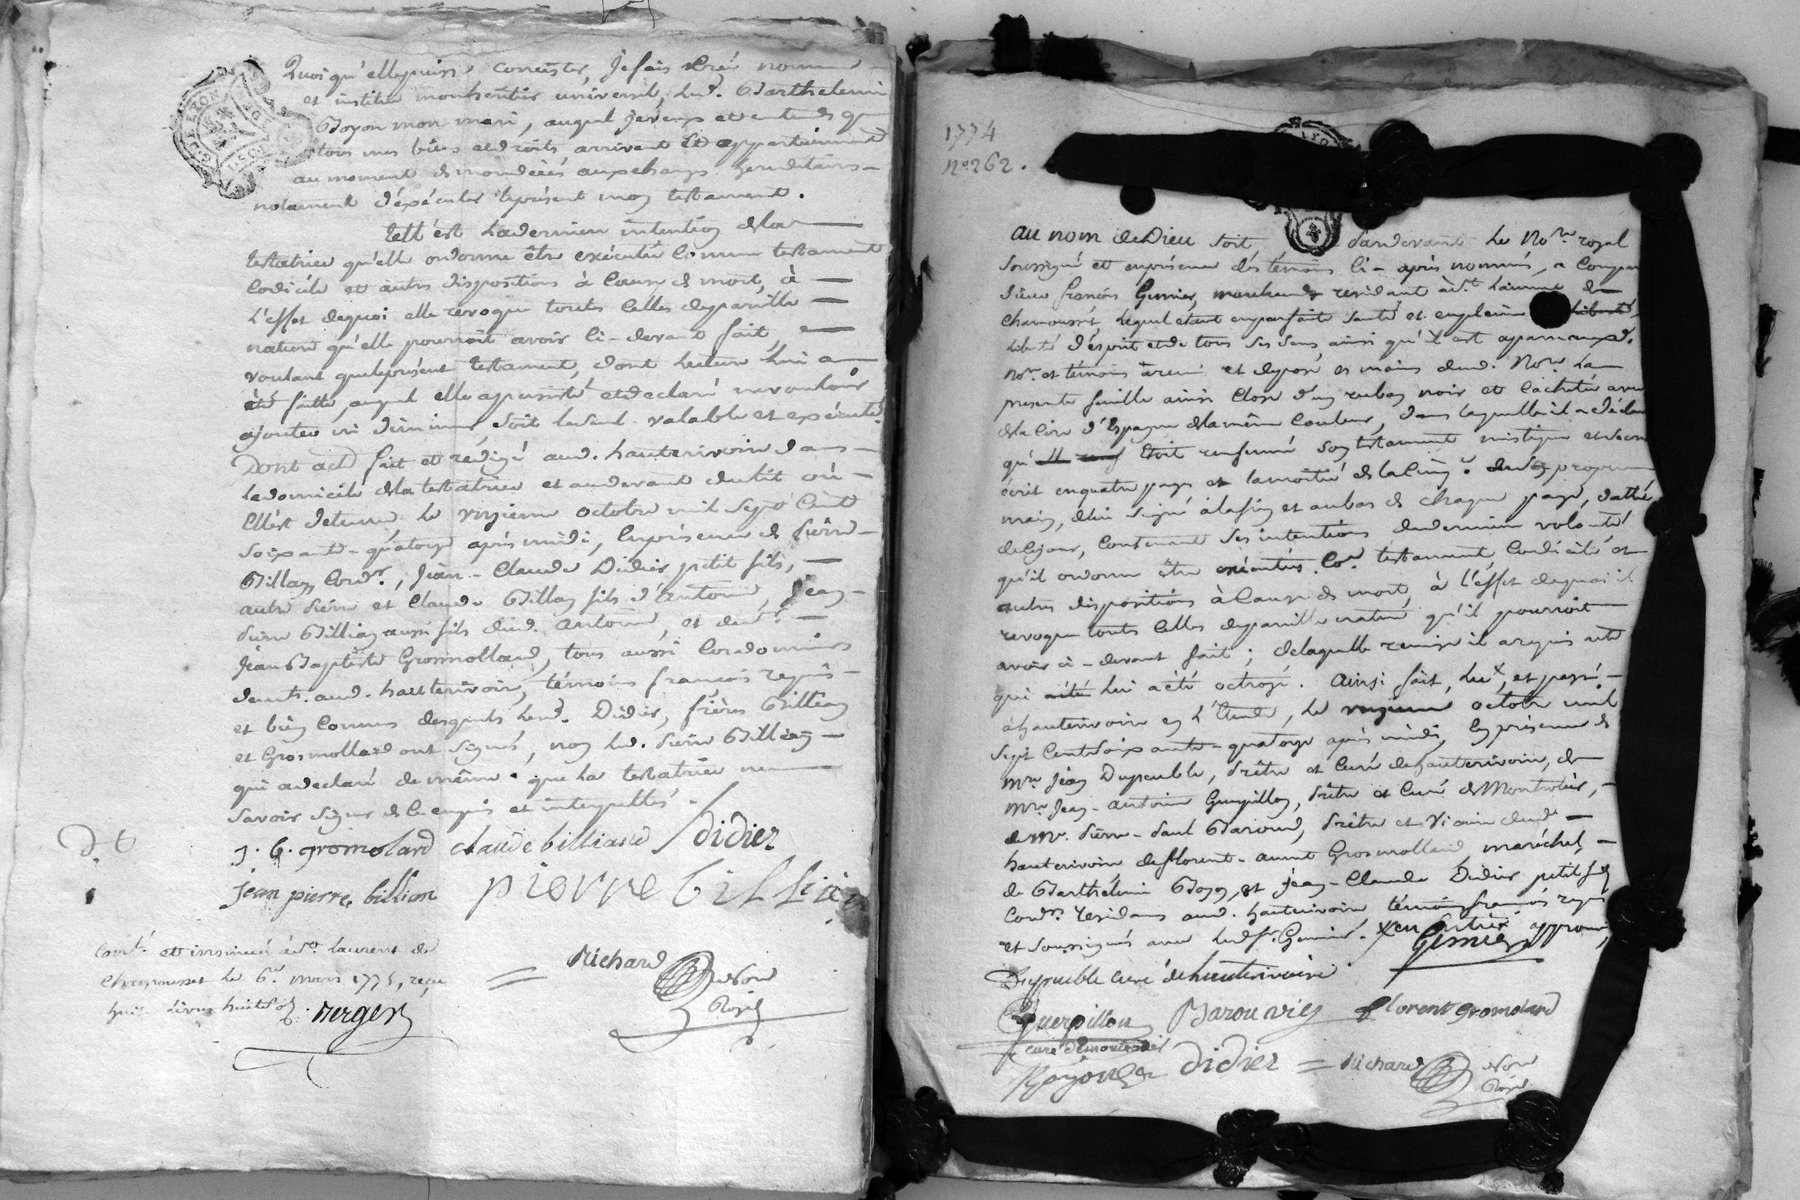 Quoi qu'elle puisse consister, Je fais Créé nomme
et institue mon heritier universel, led. Barthelemi
Boyon mon mari, auquel je veux et entends que
tous mes biens et droits arrivent et appartiennent
au moment de mon décès aux charges hereditaires
notamment d'éxécuter le présent mon testament.
Tell' est la derniere intention de la
testatrice qu'elle ordonne être exécutée comme testament
Codicile et autres dispositions à Cause de mort, à
l'effet de quoi elle revoque toutes celles de pareille
nature qu'elle pourroit avoir ci-devant fait,
voulant que le présent testament, dont lecture lui a
été faitte, auquel elle a persisté et declaré ne vouloir
ajouter ni diminuer, soit le seul valable et exécuté.
Dont acte fait et rédigé aud. hauterivoire dans
le domicile de la testatrice et au devant du lit où
elle est detenue, le onzieme octobre mil sept Cent
soixante-quatorze après midi, en présence de Pierre
Billian Cord.r, Jean-Claude Didier petit fils,
autre Pierre et Claude Billian fils d'antoine, Jean
Pierre Billian aussi fils dud. antoine, et de s.r
Jean Baptiste Grosmolland, tous aussi Cordonniers
demts. aud. hauterivoire, témoins françois requis
et bien connus desquels led. Didier, frères Billian
et Grosmollard ont signés, non led. Pierre Billian
qui a declaré de même que la testatrice ne
savoir signer de ce enquis et interpellés.
J. B. gromolard claude billiand Didier
jean pierre billion pierre billian
Richard Not.re Royal
Cont.lé et insinué à s.t laurent de
Chamousset le 6.e mars 1775, reçu
huit livres huit sols
Berger
1774
N.o 262.
Au nom de Dieu soit pardevant Le No.re royal
soussigné et en présence des témoins ci-après nommés, a Comparu
sieur françois Gernier, marchand résidant à st Laurent de
Chamousset, lequel étant en parfaite santé et en pleine liberté
liberté d'esprit et de tous ses sens ainsi qu'il est apparu aux d.
No.re et témoins a remi et deposé ès mains dud. No.re La
presente feuille ainsi close d'un ruban noir et cacheté avec
de la Cire d'Espagne de la même couleur, dans laquelle il a déclaré
qu' Etoit renfermé son testament mistique et secret
écrit en quatre pages et la moitié de la Cinq.e de sa propre
main, de lui signé à la fin et au bas de chaque page, datté
de ce jour, Contenant ses intentions de derniere volonté
qu'il ordonne être exécutées Co.e testament, Codicile et
autres dispositions à Cause de mort, à l'effet de quoi il
revoque toutes celles de pareille nature qu'il pourroit
avoir ci-devant fait; de laquelle remise il a requis acte
qui a été lui acte octroyé. Ainsi fait, lu x et passé
à hauterivoire en l'Etude, le onzieme octobre mil
sept Cent soixante-quatorze après midi, En présence de
M.re Jean Dupeuble, Prêtre et Curé de hauterivoire, de
M.re Jean-antoine Guerpillon, Prêtre et Curé de Montrotier,
de M.re Pierre-Paul Barioud, Prêtre et Vicaire dud.
hauterivoire de florent-aimé Grosmolland maréchal,
de Barthélemi Boyon et Jean-Claude Didier petit fils
Cord.rs résidans aud. hauterivoire témoins françois requis
et soussignés avec led. s.r Gernier. x en entier approuvé,
Gernier
Dupeuble curé de hauterivoire
Guerpillon curé de montrotier
Barouvier florent Gromolard
Bojon Didier Richard Not.re Royal